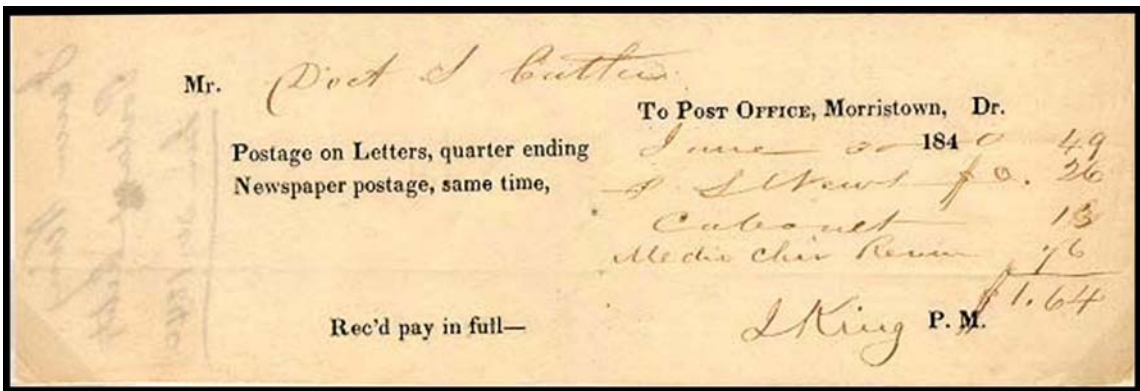 Mr. Doct S Cutler
To Post Office, Morristown, Dr.
Postage on Letters, quarter ending June 30 1840 49
Newspaper postage, same time, $0. 26
Cabonet 13
Medic Chir Review 76
$1.64
Rec'd pay in full— J King P. M.